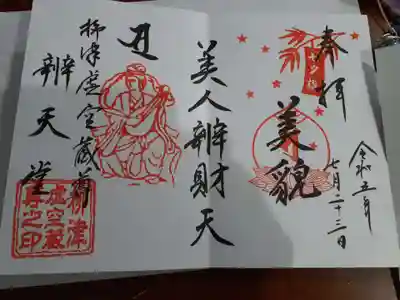 奉拝
令和五年
七月二十三日
七夕
美貌
美人辨財天
柳津虚空蔵尊
辨天堂
柳津
虚空蔵
尊之印